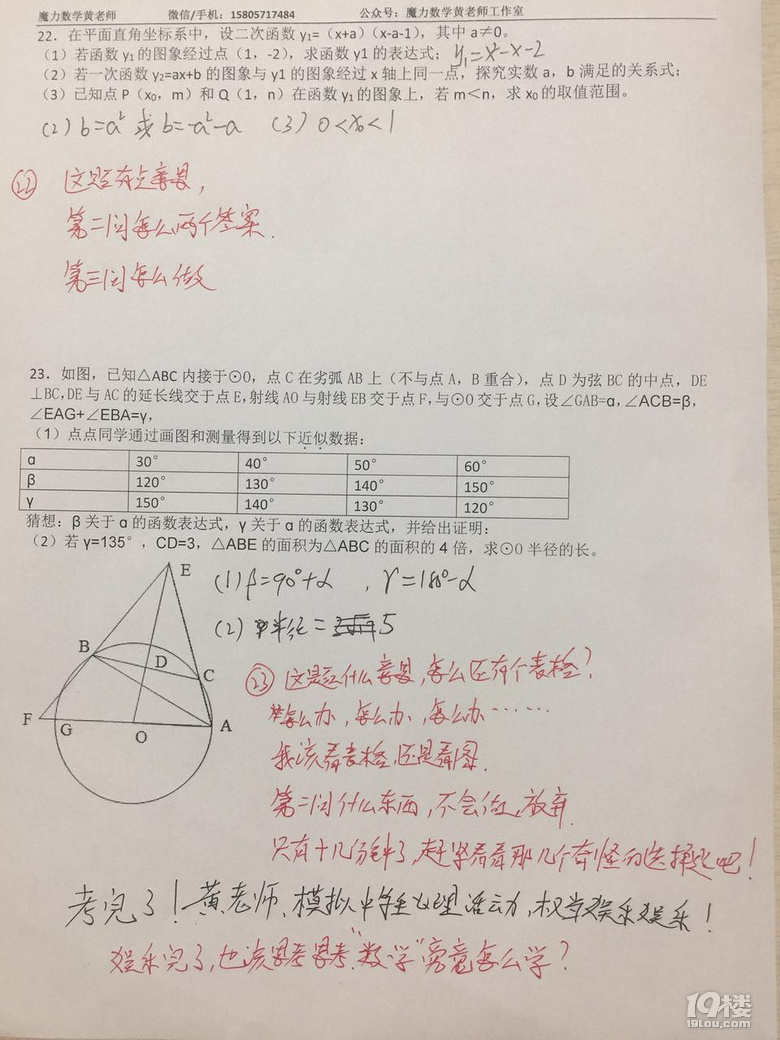 魔力数学黄老师 微信/手机：15805717484 公众号：魔力数学黄老师工作室
22．在平面直角坐标系中，设二次函数 y₁=（x+a）（x-a-1），其中 a≠0。
（1）若函数 y₁的图象经过点（1，-2），求函数 y1 的表达式； y₁=x²-x-2
（2）若一次函数 y₂=ax+b 的图象与 y1 的图象经过 x 轴上同一点，探究实数 a，b 满足的关系式；
（3）已知点 P（x₀，m）和 Q（1，n）在函数 y₁的图象上，若 m＜n，求 x₀的取值范围。
(2) b=a² 或 b=-a²-a (3) 0<x₀<1
㉒ 这题有点意思，
第二问怎么两个答案.
第三问怎么做
23．如图，已知△ABC 内接于⊙O，点 C 在劣弧 AB 上（不与点 A，B 重合），点 D 为弦 BC 的中点，DE
⊥BC,DE 与 AC 的延长线交于点 E,射线 AO 与射线 EB 交于点 F,与⊙O 交于点 G,设∠GAB=α,∠ACB=β,
∠EAG+∠EBA=γ,
（1）点点同学通过画图和测量得到以下近似数据：
α 30° 40° 50° 60°
β 120° 130° 140° 150°
γ 150° 140° 130° 120°
猜想：β 关于 α 的函数表达式，γ 关于 α 的函数表达式，并给出证明：
（2）若 γ=135°，CD=3，△ABE 的面积为△ABC 的面积的 4 倍，求⊙O 半径的长。
E
(1) β=90°+α ，γ=180°-α
B
D
(2) 半径= 5
C
㉓ 这是什么意思，怎么还有个表格？
F
G
O
A
怎么办，怎么办，怎么办……
我该看表格，还是看图.
第二问什么东西，不会做，放弃.
只有十几分钟了，赶紧看看那几个奇怪的选择题吧！
考完了！黄老师、模拟中学生心理活动，权当娱乐娱乐！
娱乐完了，也该思考思考，"数学"究竟怎么学？
19楼
19lou.com